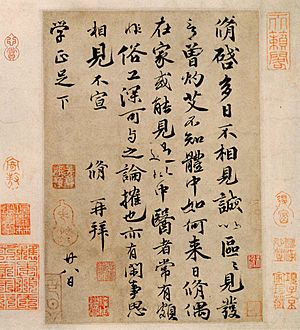 脩啓多日不相見誠以區區見發
言曾灼艾不知體中如何來日脩偶
在家或能見過此中醫者常有頗
非俗工深可與之論搉也亦有閑事思
相見不宣 脩再拜
廿八日
學正足下